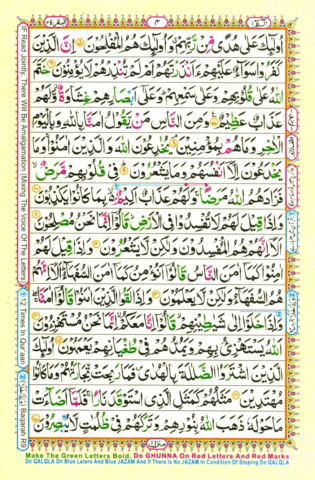 البقرة ٢
٤
الٓمّٓ ١
اُولٰٓئِكَ عَلٰى هُدًى مِّنْ رَّبِّهِمْ وَاُولٰٓئِكَ هُمُ الْمُفْلِحُوْنَ ۝ اِنَّ الَّذِيْنَ
كَفَرُوْا سَوَآءٌ عَلَيْهِمْ ءَاَنْذَرْتَهُمْ اَمْ لَمْ تُنْذِرْهُمْ لَا يُؤْمِنُوْنَ ۝ خَتَمَ
اللّٰهُ عَلٰى قُلُوْبِهِمْ وَعَلٰى سَمْعِهِمْ وَعَلٰٓى اَبْصَارِهِمْ غِشَاوَةٌ وَّلَهُمْ
عَذَابٌ عَظِيْمٌ ۝ وَمِنَ النَّاسِ مَنْ يَّقُوْلُ اٰمَنَّا بِاللّٰهِ وَبِالْيَوْمِ
الْاٰخِرِ وَمَا هُمْ بِمُؤْمِنِيْنَ ۝ يُخٰدِعُوْنَ اللّٰهَ وَالَّذِيْنَ اٰمَنُوْا وَمَا
يَخْدَعُوْنَ اِلَّآ اَنْفُسَهُمْ وَمَا يَشْعُرُوْنَ ۝ فِيْ قُلُوْبِهِمْ مَّرَضٌ
فَزَادَهُمُ اللّٰهُ مَرَضًا وَلَهُمْ عَذَابٌ اَلِيْمٌ بِمَا كَانُوْا يَكْذِبُوْنَ ۝
وَاِذَا قِيْلَ لَهُمْ لَا تُفْسِدُوْا فِى الْاَرْضِ قَالُوْٓا اِنَّمَا نَحْنُ مُصْلِحُوْنَ ۝
اَلَآ اِنَّهُمْ هُمُ الْمُفْسِدُوْنَ وَلٰكِنْ لَّا يَشْعُرُوْنَ ۝ وَاِذَا قِيْلَ لَهُمْ
اٰمِنُوْا كَمَآ اٰمَنَ النَّاسُ قَالُوْٓا اَنُؤْمِنُ كَمَآ اٰمَنَ السُّفَهَآءُ اَلَآ اِنَّهُمْ
هُمُ السُّفَهَآءُ وَلٰكِنْ لَّا يَعْلَمُوْنَ ۝ وَاِذَا لَقُوا الَّذِيْنَ اٰمَنُوْا قَالُوْٓا اٰمَنَّا
وَاِذَا خَلَوْا اِلٰى شَيٰطِيْنِهِمْ قَالُوْٓا اِنَّا مَعَكُمْ اِنَّمَا نَحْنُ مُسْتَهْزِءُوْنَ ۝
اَللّٰهُ يَسْتَهْزِئُ بِهِمْ وَيَمُدُّهُمْ فِيْ طُغْيَانِهِمْ يَعْمَهُوْنَ ۝ اُولٰٓئِكَ
الَّذِيْنَ اشْتَرَوُا الضَّلٰلَةَ بِالْهُدٰى فَمَا رَبِحَتْ تِّجَارَتُهُمْ وَمَا كَانُوْا
مُهْتَدِيْنَ ۝ مَثَلُهُمْ كَمَثَلِ الَّذِى اسْتَوْقَدَ نَارًا فَلَمَّآ اَضَآءَتْ
مَا حَوْلَهٗ ذَهَبَ اللّٰهُ بِنُوْرِهِمْ وَتَرَكَهُمْ فِيْ ظُلُمٰتٍ لَّا يُبْصِرُوْنَ ۝
IF Read Jointly, There Will Be Amalgamation (Mixing The Voice Of The Letters)
12 Times In Qur'aan
Baqarah R9
منزل ١
Make The Green Letters Bold, Do GHUNNA On Red Letters And Red Marks
Do QALQLA On Blue Leters And Blue JAZAM And If There Is No JAZAM In Condition Of Stoping Do QALQLA